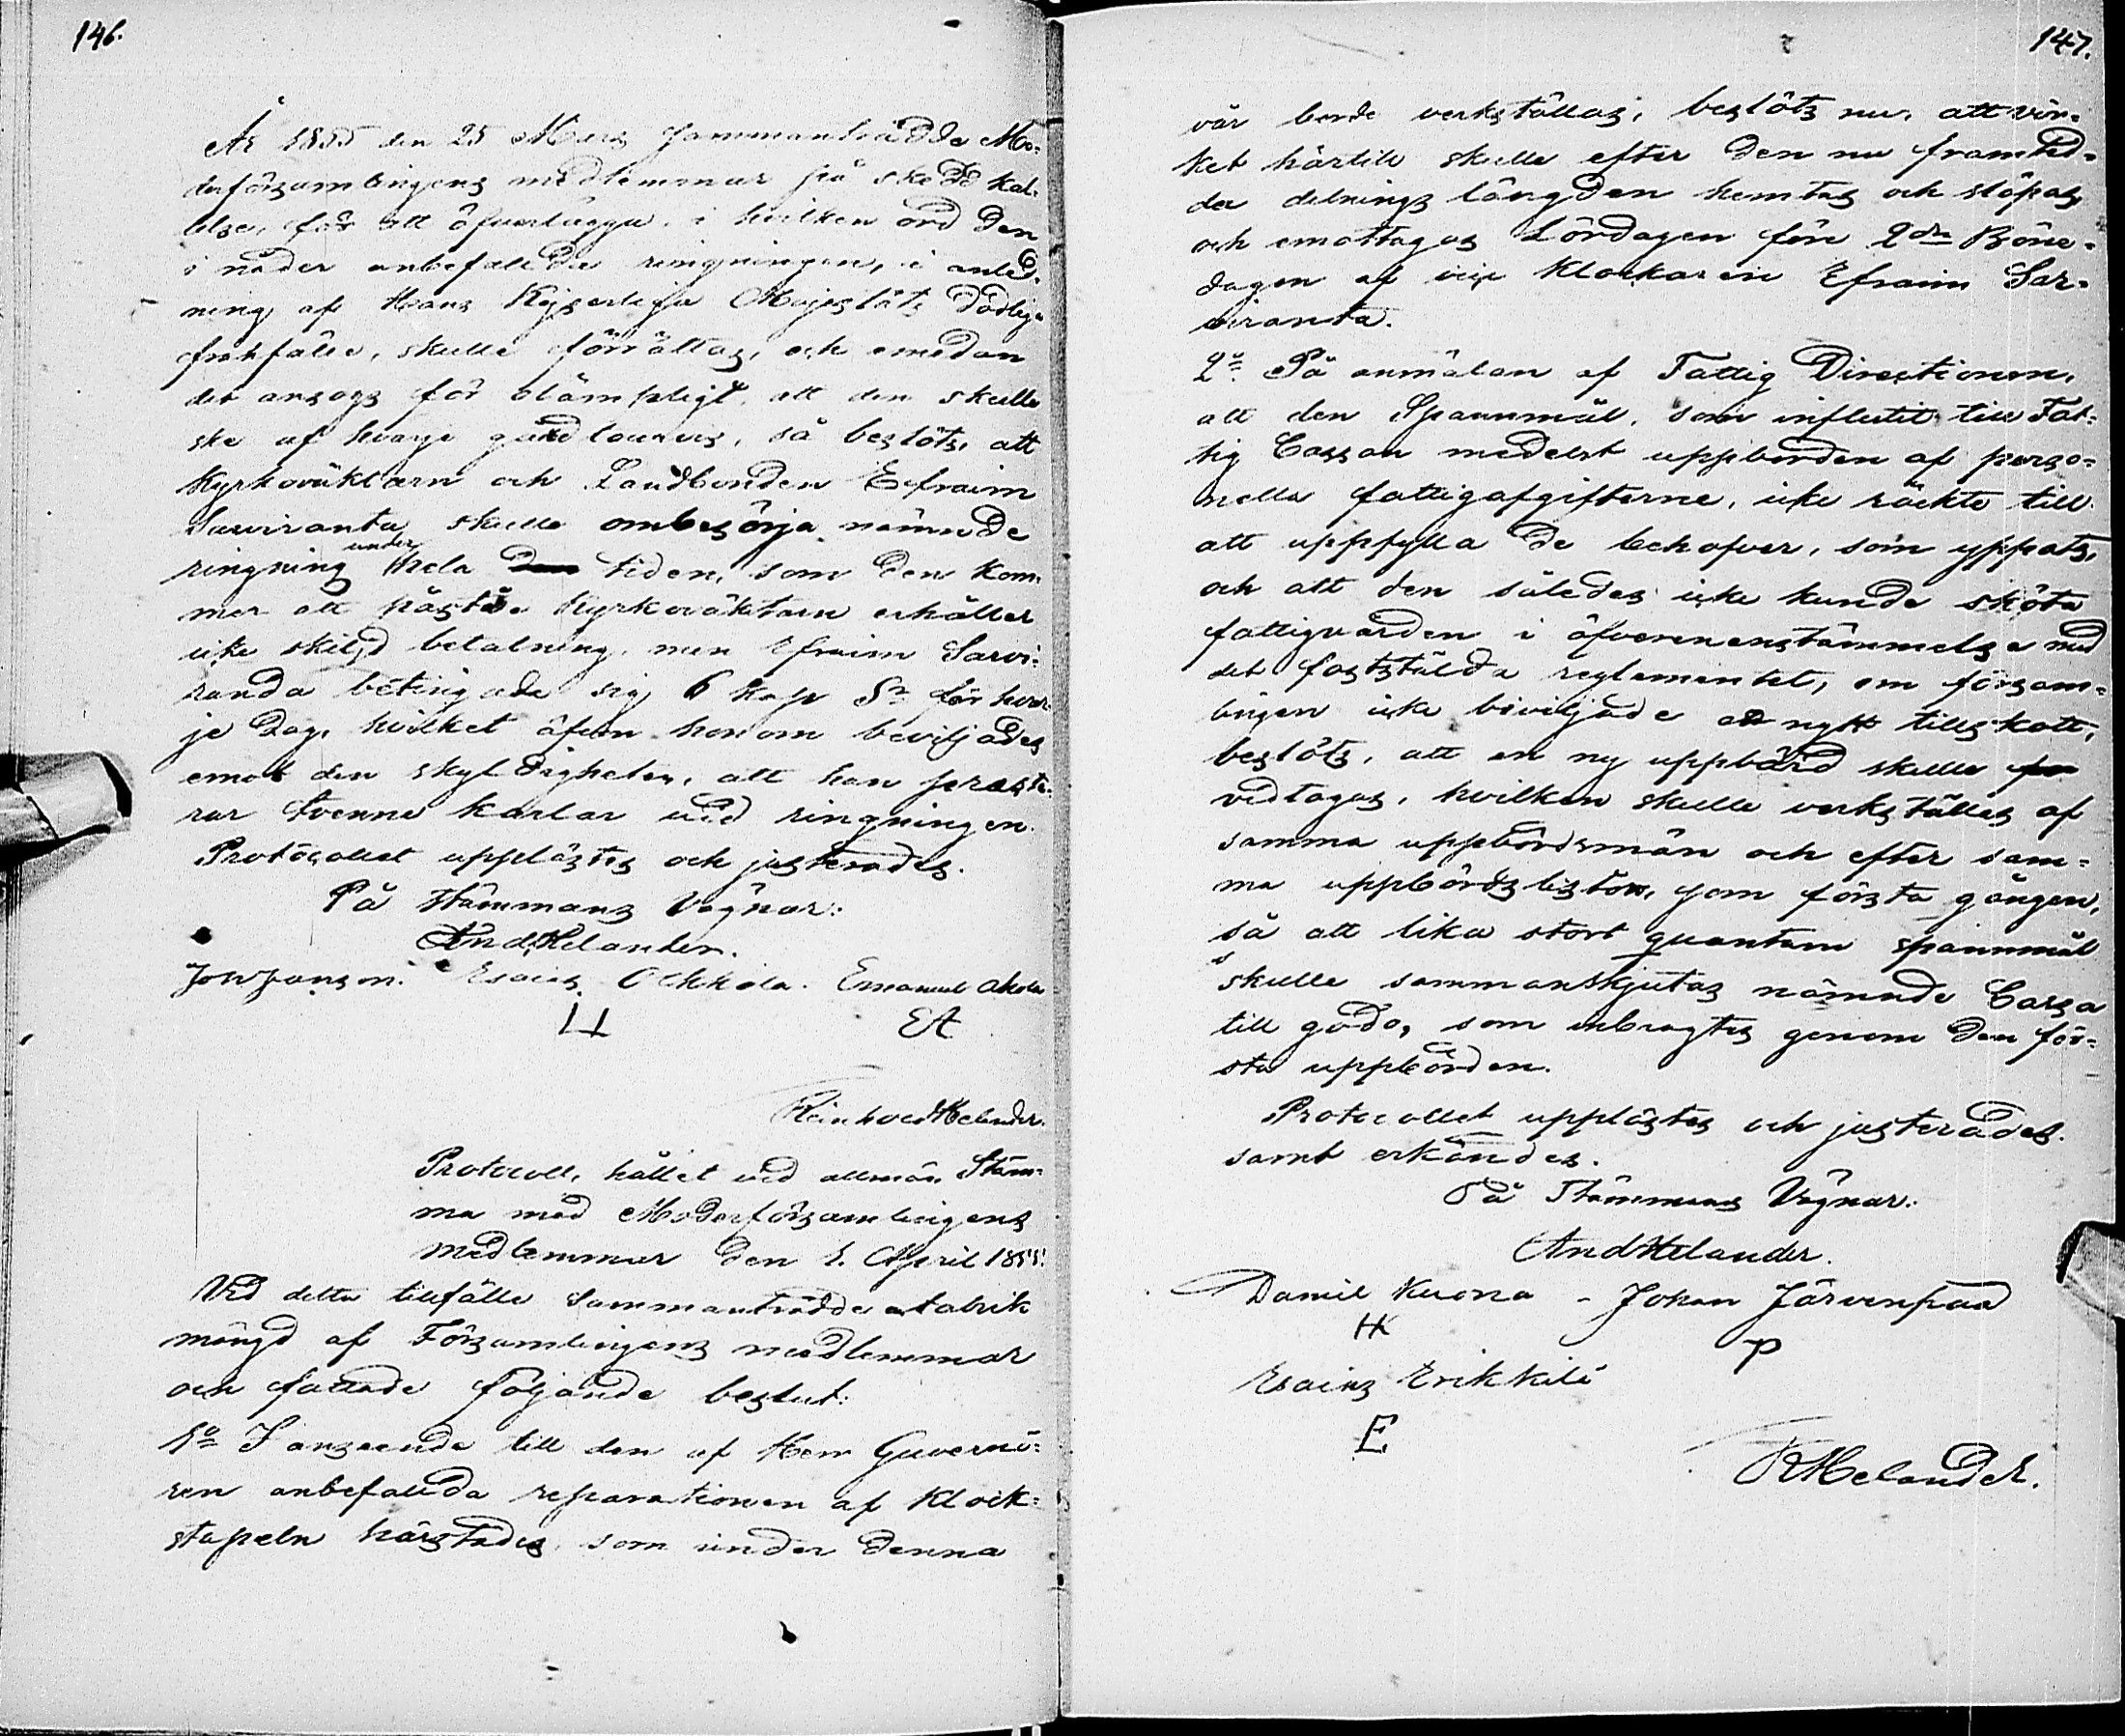 146.
År 1855 den 25 Mars sammanträdde Mo-
derförsamlingens medlemmar på skedd kal-
lelse, för att öfverlägga, i hvilken ord den
i nåder anbefallda ringningen, i anled-
ning af Hans Kejserliga Majestäts dödliga
frånfälle, skulle förrättas, och emedan
det ansogs för olämpligt, att den skulle
ske af hvarje gårdtourvis, så beslöts, att
Kyrkoväktarn och Landbonden Efraim
Sarviranta skulle ombesörja nämnde
ringning under hela den tiden, som den kom-
mer att påstå. Kyrkoväktarn erhåller
icke skild betalning, men Efraim Sarvi-
randa betingade sig 6 kap Sr för hvar-
je dag, hvilket äfven honom beviljades
emot den skyldigheten, att han preste-
rar tvenne karlar vid ringningen.
Protocollet upplästes och justerades.
På Stämmans Vägnar:
And Helander.
Joh Janson. Esaias Ochkola. Emanuel Ahola
EA
Reinhold Helander.
Protocoll, hållet vid allmän Stäm-
ma med Moderförsamlingens
medlemmar den 1. April 1855.
Vid detta tillfälle sammanträdde talrik
mängd af Församlingens medlemmar
och fattade följande beslut:
1o I anseende till den af Herr Guvernö-
ren anbefallda reparationen af Klock-
stapeln härstädes, som under denna
147.
vår borde verkställas, beslöts nu, att vir-
ket härtill skulle efter den nu framled-
da delnings längden hemtas och släpas,
och emottagas Lördagen före 2dra Böne-
dagen af vice Klockaren Efraim Sar-
viranta.
2o På anmälan af Fattig Directionen,
att den Spannmål, som influtit till Fat-
tig Cassan medelst uppbörden af perso-
nella fattigafgifterne, icke räckte till
att uppfylla de behofver, som yppats,
och att den således icke kunde sköta
fattigvården i öfverenenstämmelse med
det fastställda reglementet, om försam-
lingen icke beviljade nytt tillskott,
beslöts, att en ny uppbörd skulle
vidtagas, hvilken skulle verkställas af
samma uppbördsmän och efter sam-
ma uppbördslistor, som första gången,
så att lika stort quantum spannmål
skulle sammanskjutas nämnde Cassa
till godo, som inbragtes genom den för-
sta uppbörden.
Protocollet upplästes och justerades
samt erkändes.
På Stämmans Vägnar:
And Helander.
Daniel Kuona - Johan Järvenpää
HK
P
Esaias Erikkilä
E
R Helander.